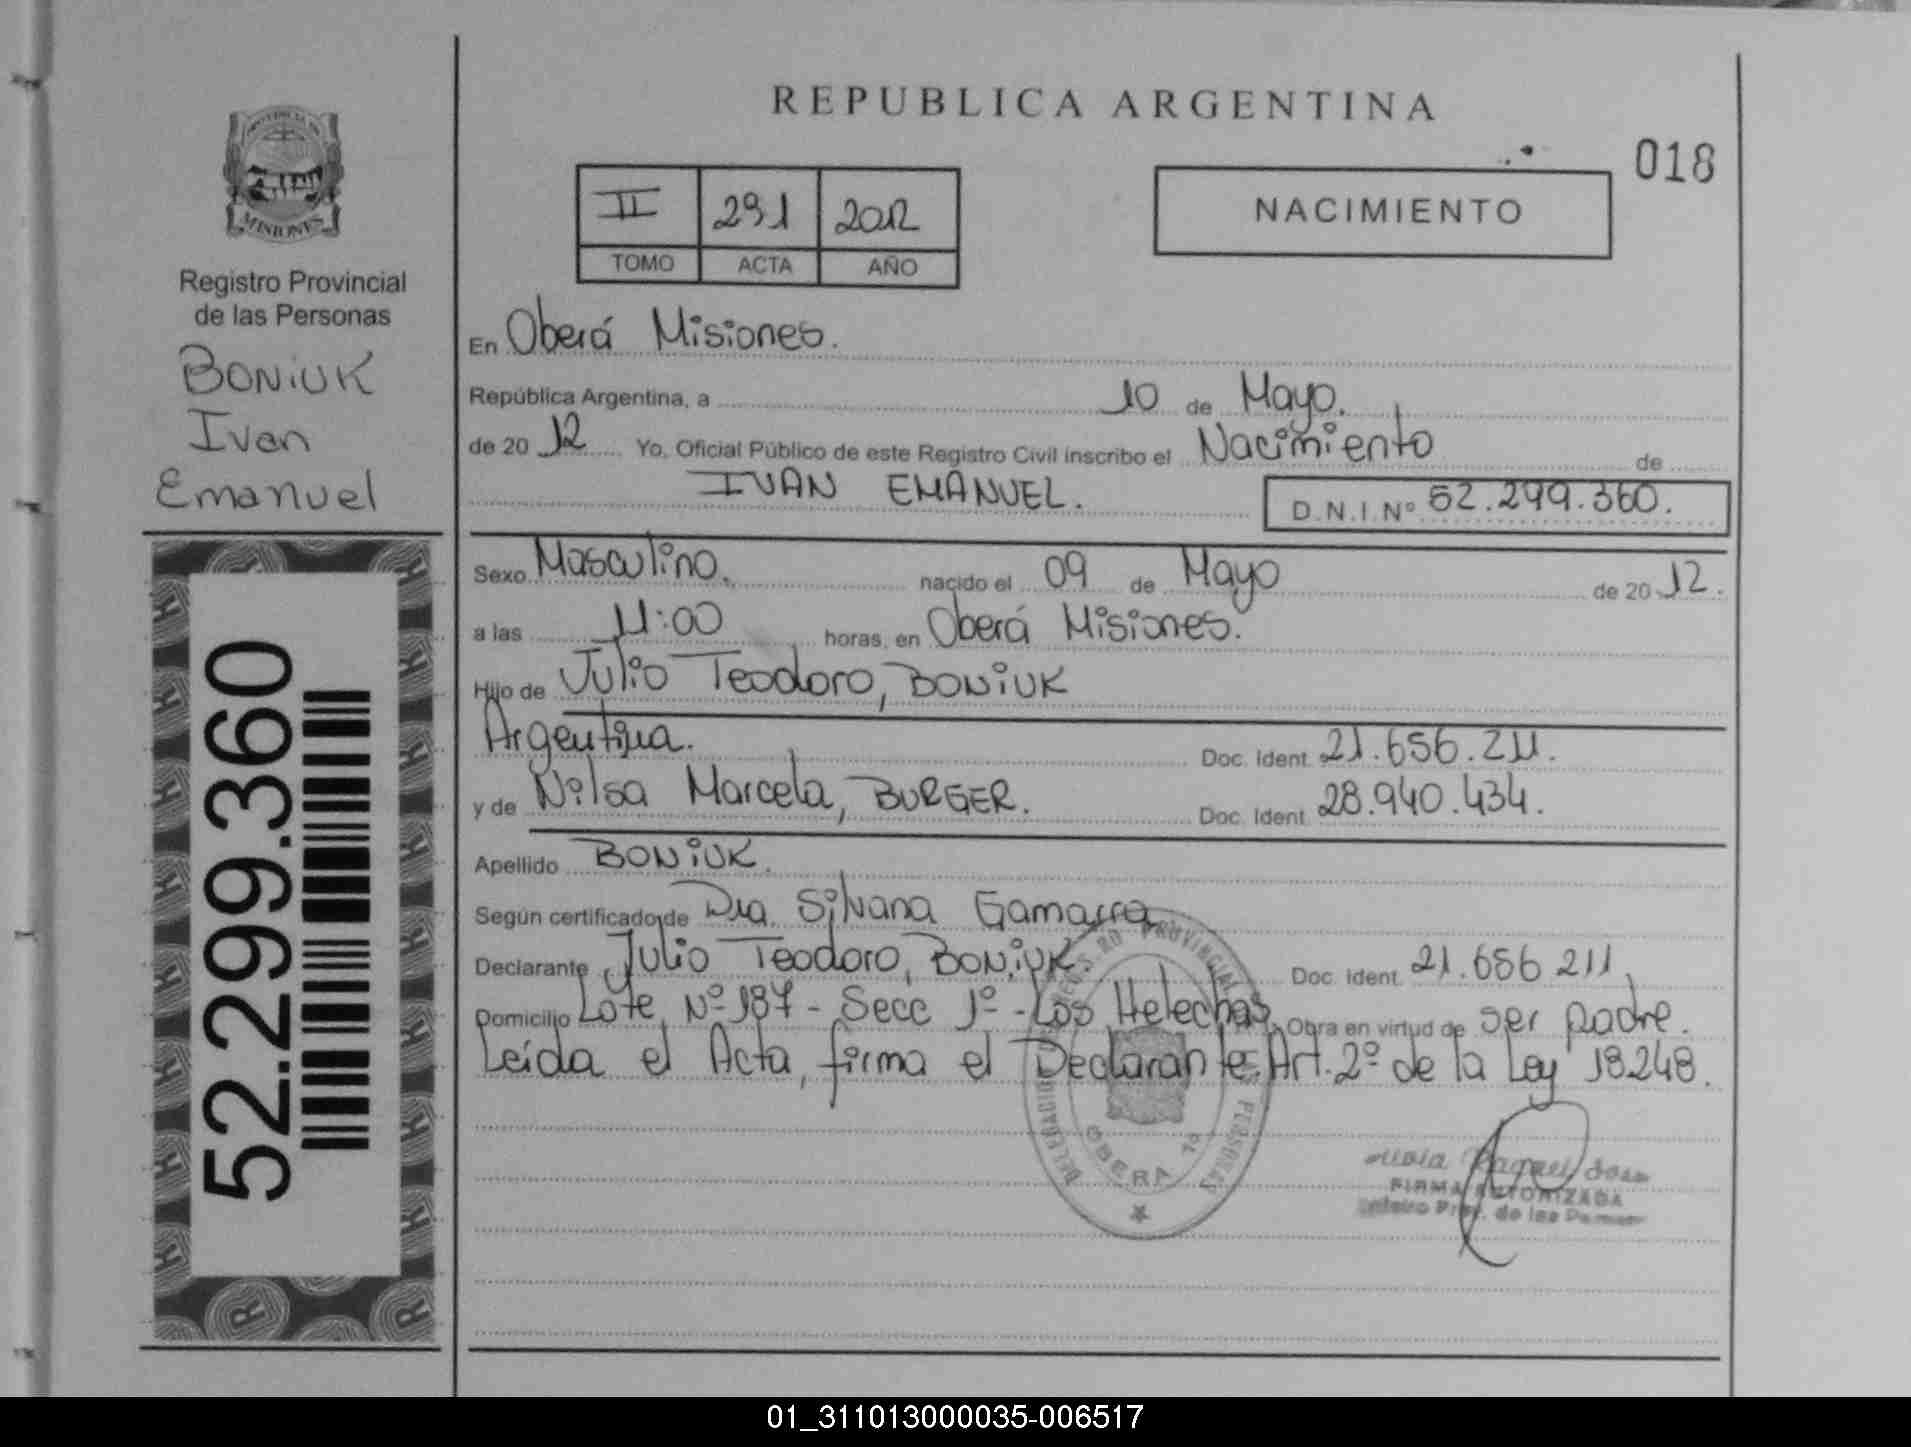 PROVINCIA DE
MISIONES
Registro Provincial
de las Personas
BONIUK
Ivan
Emanuel
52.299.360
REPUBLICA ARGENTINA
018
II 291 2012
TOMO ACTA AÑO
NACIMIENTO
En Oberá Misiones.
República Argentina, a 10 de Mayo.
de 20 12 Yo, Oficial Público de este Registro Civil inscribo el Nacimiento de
IVAN EMANUEL. D.N.I.Nº 52.299.360.
Sexo Masculino. nacido el 09 de Mayo de 20 12.
a las 11:00 horas, en Oberá Misiones.
Hijo de Julio Teodoro, BONIUK
Argentina. Doc. Ident. 21.656.211.
y de Nilsa Marcela, BURGER. Doc. Ident. 28.940.434.
Apellido BONIUK.
Según certificado de Dra. Silvana Gamarra
Declarante Julio Teodoro, BONIUK. Doc. Ident. 21.656 211.
Domicilio Lote Nº 187 - Secc 1º - Los Helechos. Obra en virtud de ser padre.
Leída el Acta, firma el Declarante. Art. 2º de la Ley 18.248.
PROVINCIAL
OBERA 1º
Raquel
FIRMA AUTORIZADA
de las
01_311013000035-006517